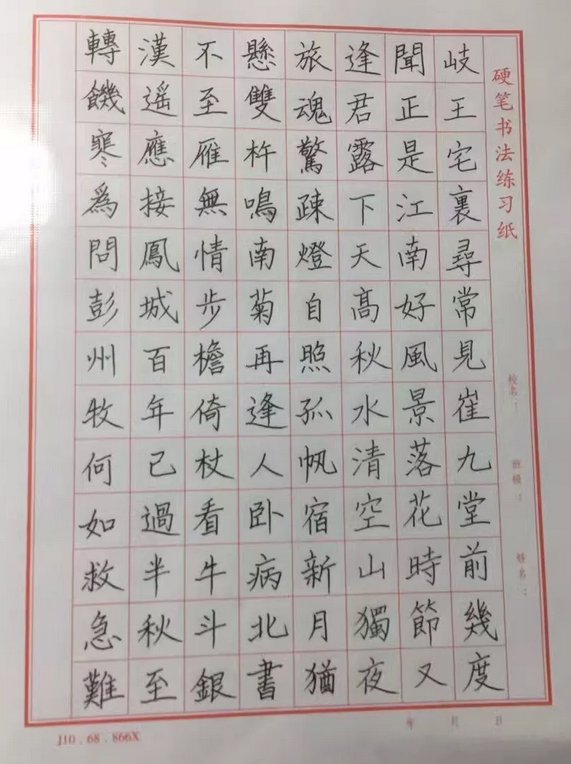 硬笔书法练习纸
校名：
班级：
姓名：
岐王宅裏尋常見崔九堂前幾度
聞正是江南好風景落花時節又
逢君露下天高秋水清空山獨夜
旅魂驚疎燈自照孤帆宿新月猶
懸雙杵鳴南菊再逢人卧病北書
不至雁無情步檐倚杖看牛斗銀
漢遥應接鳳城百年已過半秋至
轉饑寒爲問彭州牧何如救急難
年 月 日
J10．68．866X